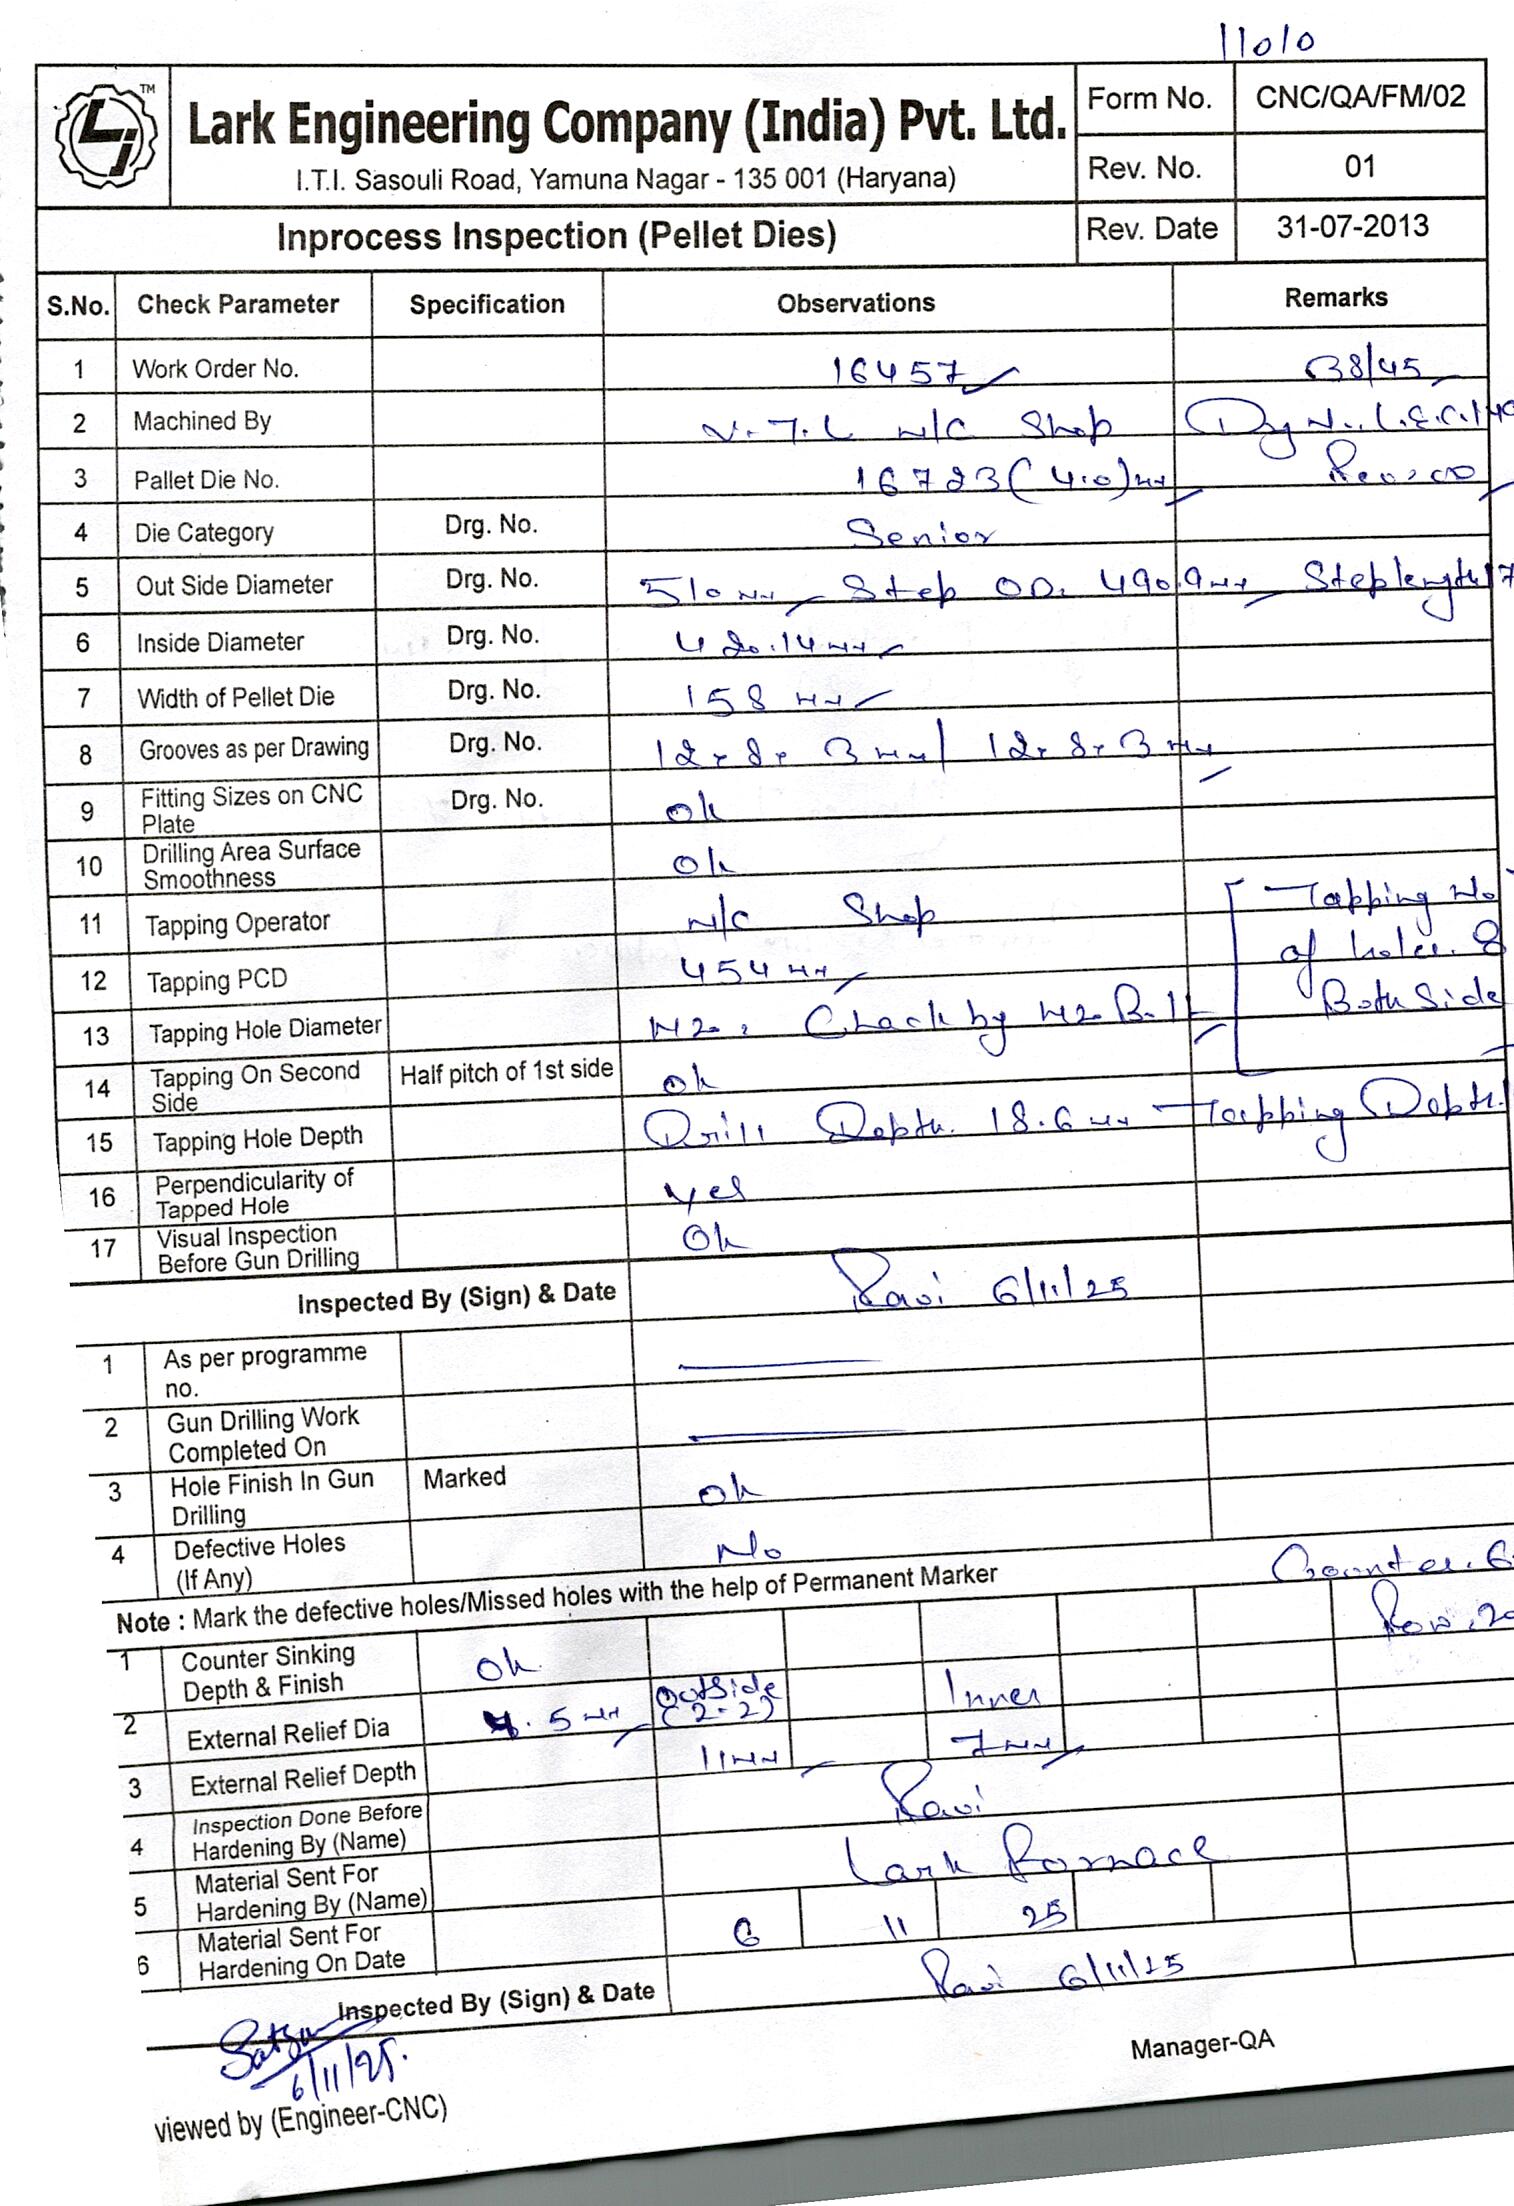 11010
TM
Lark Engineering Company (India) Pvt. Ltd.
I.T.I. Sasouli Road, Yamuna Nagar - 135 001 (Haryana)
Form No. CNC/QA/FM/02
Rev. No. 01
Inprocess Inspection (Pellet Dies)
Rev. Date 31-07-2013
S.No. Check Parameter Specification Observations Remarks
1 Work Order No. 16457 38/45
2 Machined By V.T.L M/C Shop
3 Pallet Die No. 16723 (4.0) mm Rev:00
4 Die Category Drg. No. Senior
5 Out Side Diameter Drg. No. 510 mm Step OD. 490.9 mm Step length 17
6 Inside Diameter Drg. No. 420.14 mm
7 Width of Pellet Die Drg. No. 158 mm
8 Grooves as per Drawing Drg. No. 12x8x3 mm / 12x8x3 mm
9 Fitting Sizes on CNC Plate Drg. No. Ok
10 Drilling Area Surface Smoothness Ok
11 Tapping Operator M/C Shop Tapping No.
12 Tapping PCD 454 mm of holes. 8
13 Tapping Hole Diameter M20, Check by M20 Bolt Both Side
14 Tapping On Second Side Half pitch of 1st side Ok
15 Tapping Hole Depth Drill Depth. 18.6 mm Tapping Depth.
16 Perpendicularity of Tapped Hole Yes
17 Visual Inspection Before Gun Drilling Ok
Inspected By (Sign) & Date Ravi 6/11/25
1 As per programme no.
2 Gun Drilling Work Completed On
3 Hole Finish In Gun Drilling Marked Ok
4 Defective Holes (If Any) No
Note : Mark the defective holes/Missed holes with the help of Permanent Marker Counter. 6
Row. 20
1 Counter Sinking Depth & Finish Ok
2 External Relief Dia .5 mm Outside (2-2) Inner
3 External Relief Depth 11 mm 7 mm
4 Inspection Done Before Hardening By (Name) Ravi
5 Material Sent For Hardening By (Name) Lark Fornace
6 Material Sent For Hardening On Date 6 11 25
Inspected By (Sign) & Date Ravi 6/11/25
6/11/25.
Manager-QA
viewed by (Engineer-CNC)